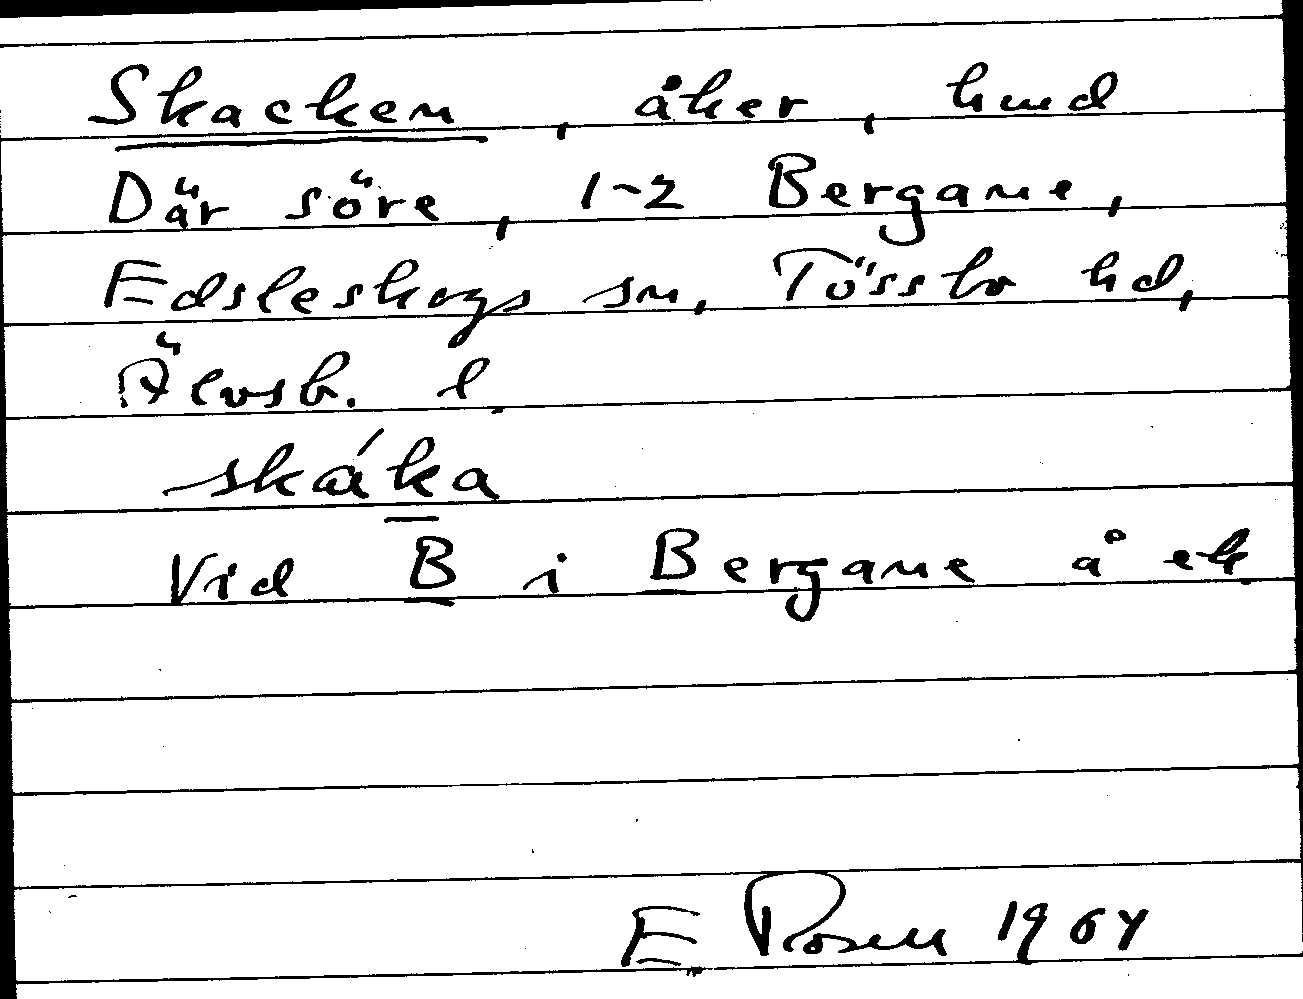 Skacken, åker, hmd
Där söre, 1-2 Bergane,
Edsleskogs sn, Tössbo hd,
Älvsb. l.
skák̲a
Vid B i Bergane å ek.
E. Rosen 1964